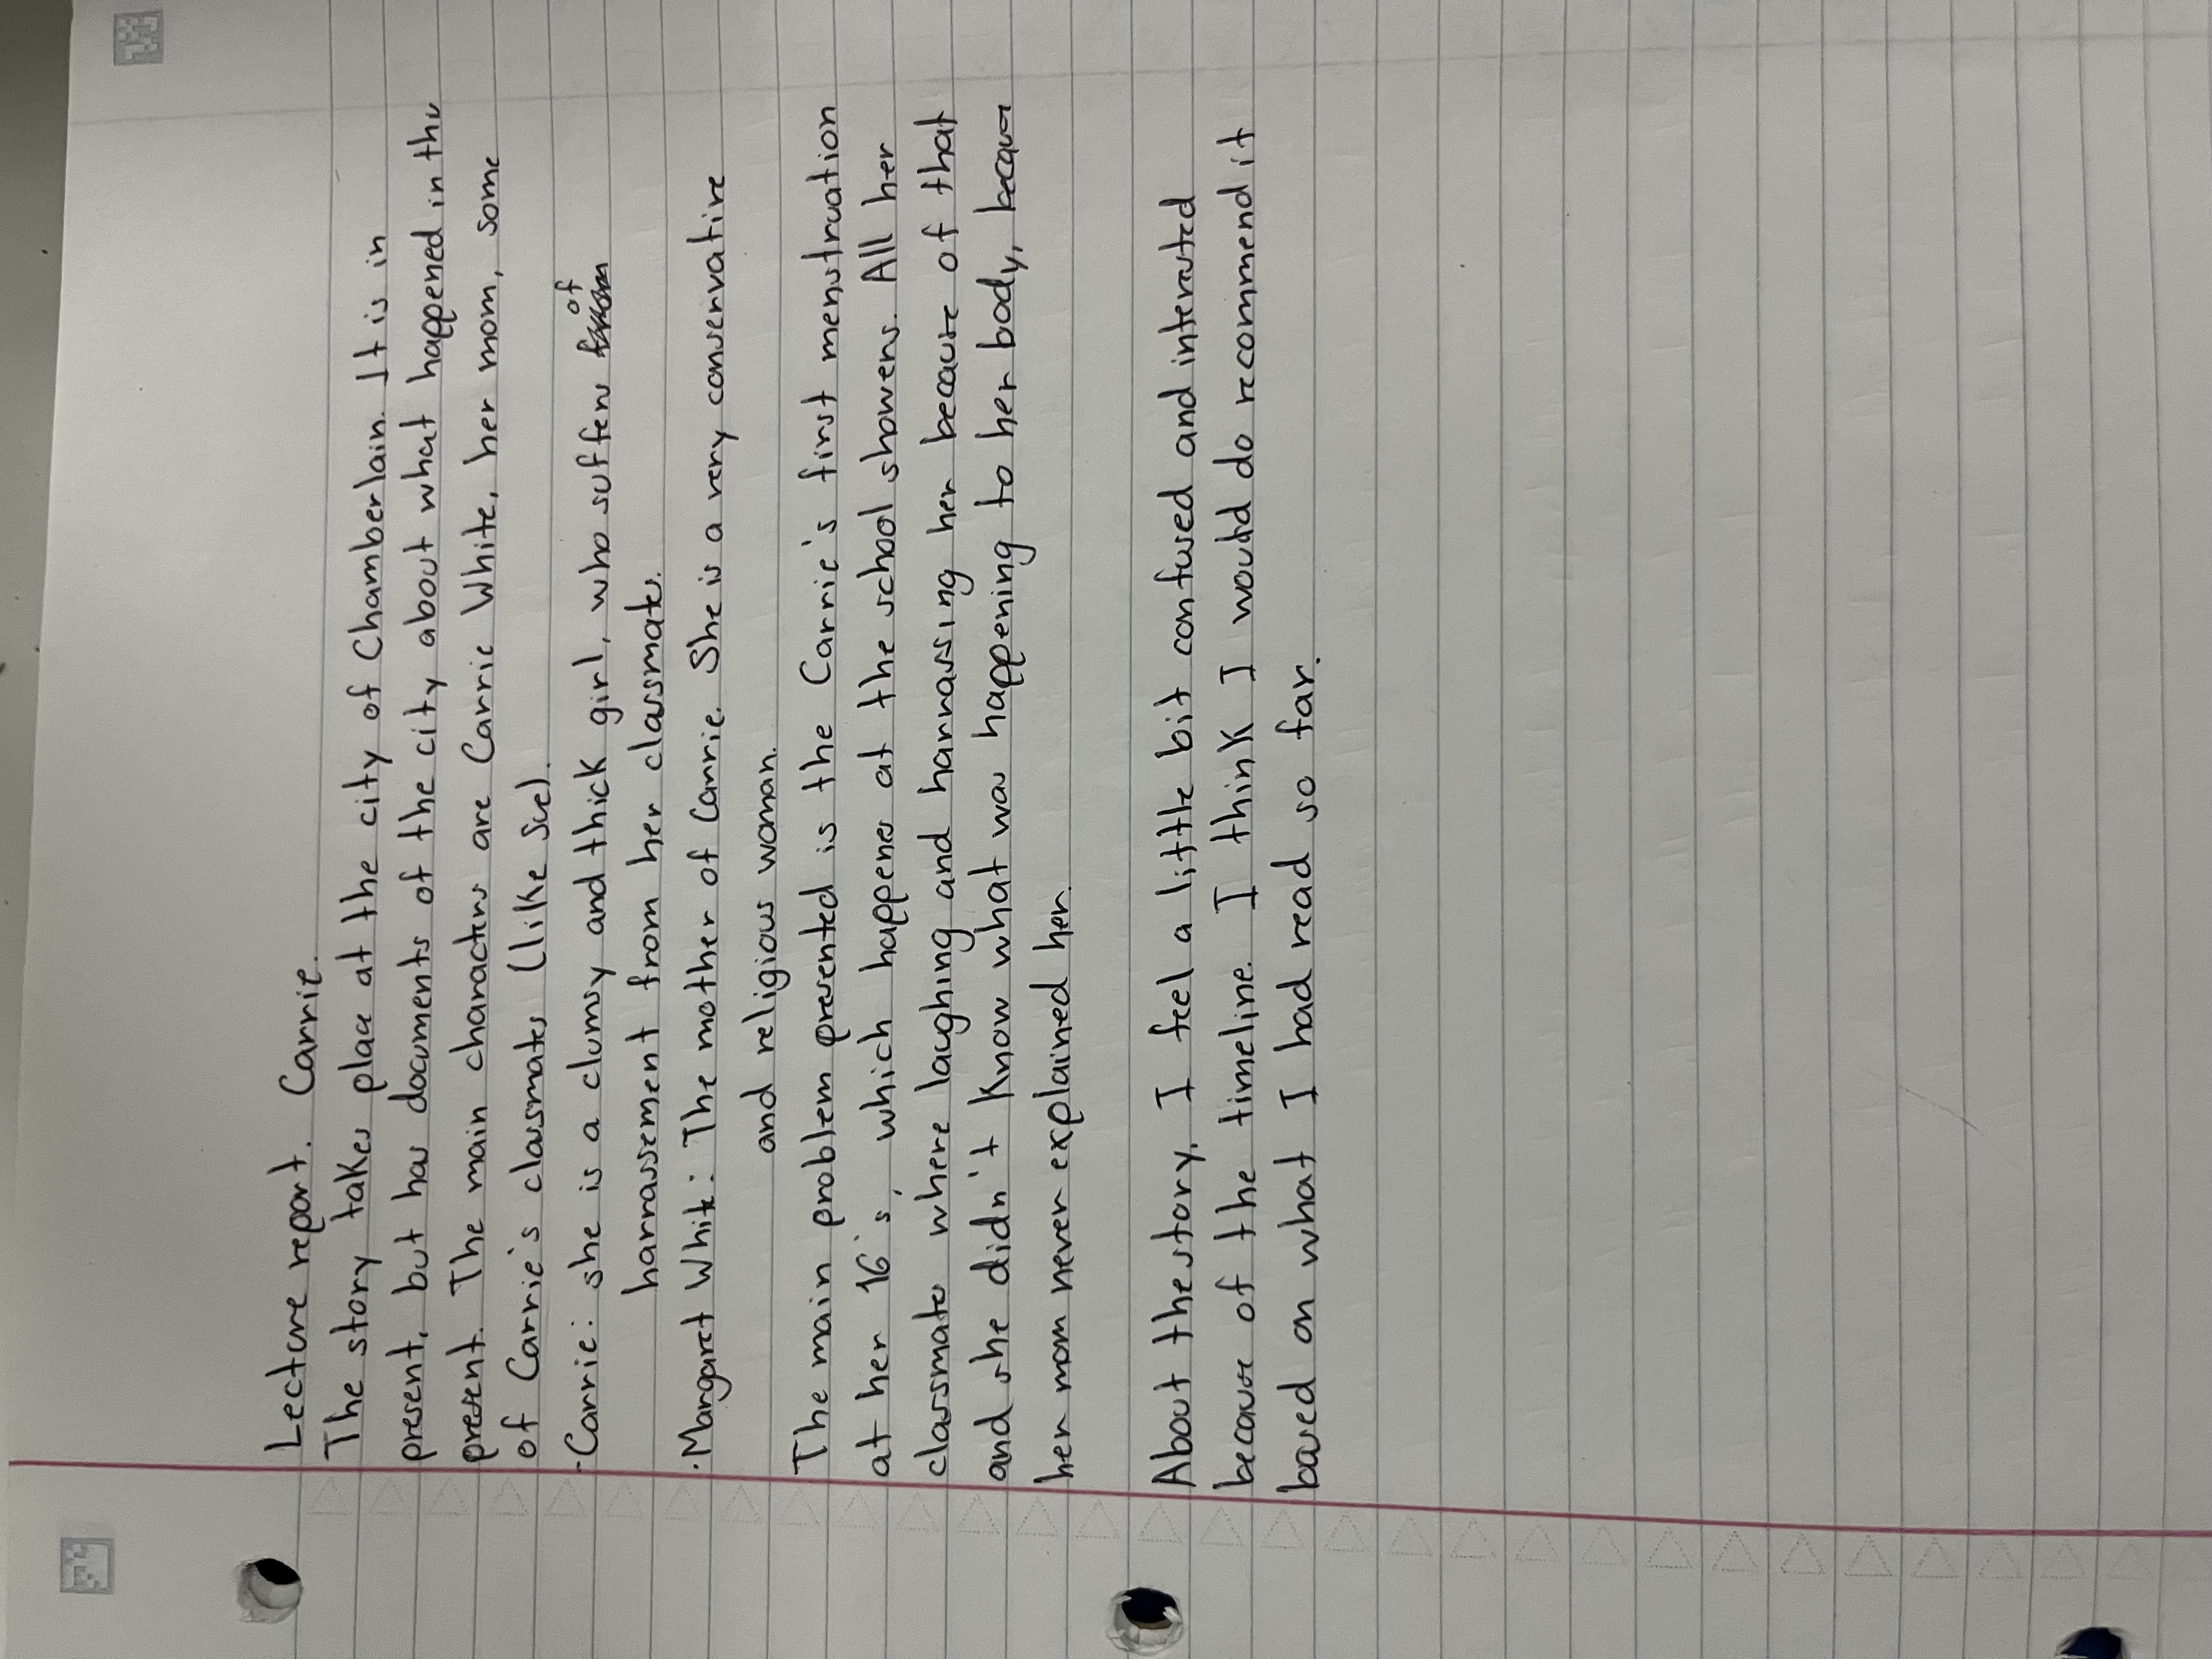 Lecture report. Carrie.
The story takes place at the city of Chamberlain. It is in
present, but has documents of the city about what happened in the
present. The main characters are Carrie White, her mom, some
of Carrie's classmates (like Sue).
·Carrie: she is a clumsy and thick girl, who suffers of
harrassement from her classmates.
·Margaret White: The mother of Carrie. She is a very conservative
and religious woman.
The main problem presented is the Carrie's first menstruation
at her 16's, which happens at the school showers. All her
classmates where laughing and harrassing her because of that
and she didn't know what was happening to her body, because
her mom never explained her.
About the story, I feel a little bit confused and interested
because of the timeline. I think I would do recommend it
based on what I had read so far.